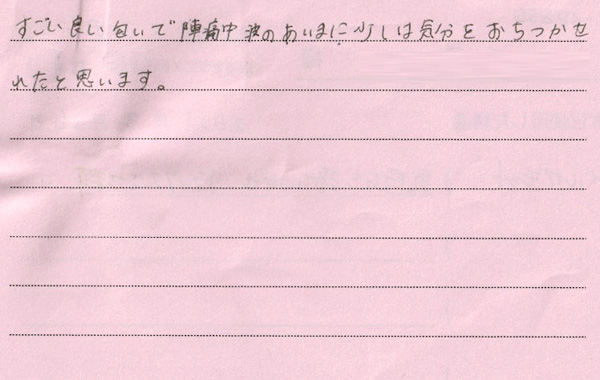 すごい良い匂いで陣痛中波のあいまに少しは気分をおちつかせ
れたと思います。